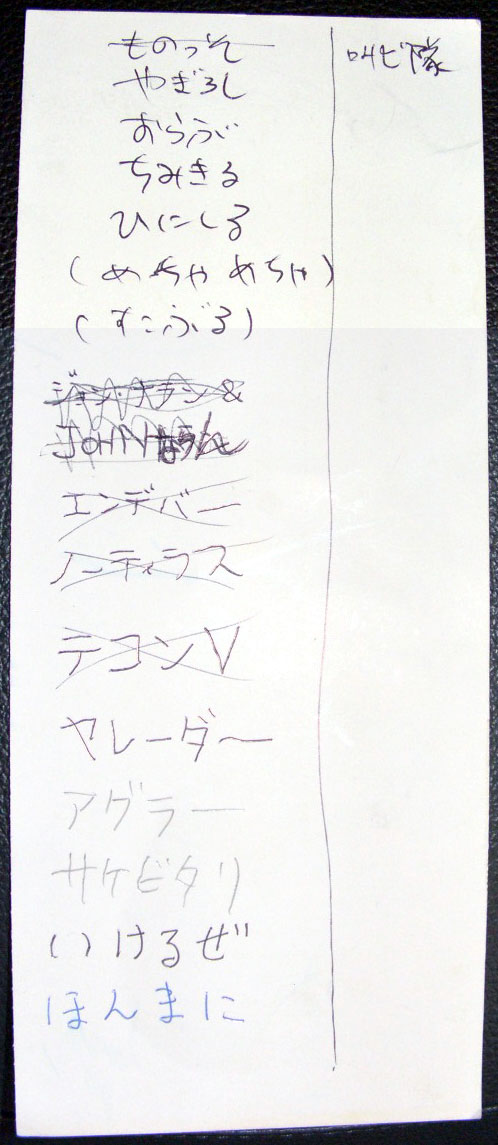 ものっそ
やぎろし
おらふぶ
ちみきる
ひにしる
(めちゃめちゃ)
(すこぶる)
ジョン・ナラン&
JOHNならん
エンデバー
ノーティラス
テコンV
ヤレーダー
アグラー
サケビタリ
いけるぜ
ほんまに
叫ビ隊